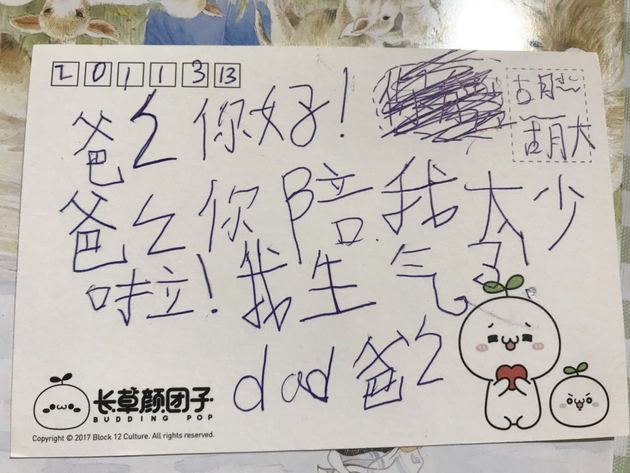 2 0 1 1 3 13
爸乙你好！
胡
胡大
爸乙你陪我太少
啦！我生气了
dad爸乙
长草颜团子
BUDDING POP
Copyright © 2017 Block 12 Culture. All rights reserved.